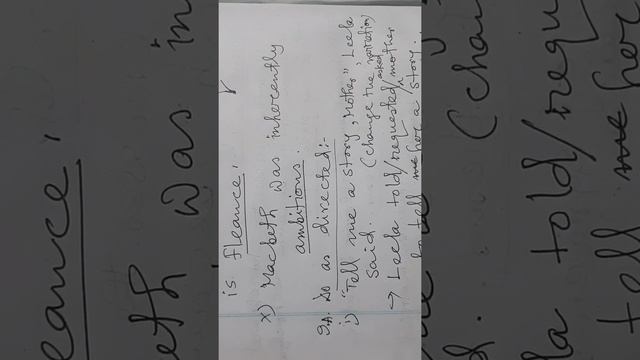 is fleance.
x) Macbeth was inherently
ambitions.
9.A. Do as directed:-
i) "Tell me a story, Mother", Leela
said. (Change the narration)
→ Leela told/requested/asked mother
to tell me her a story.